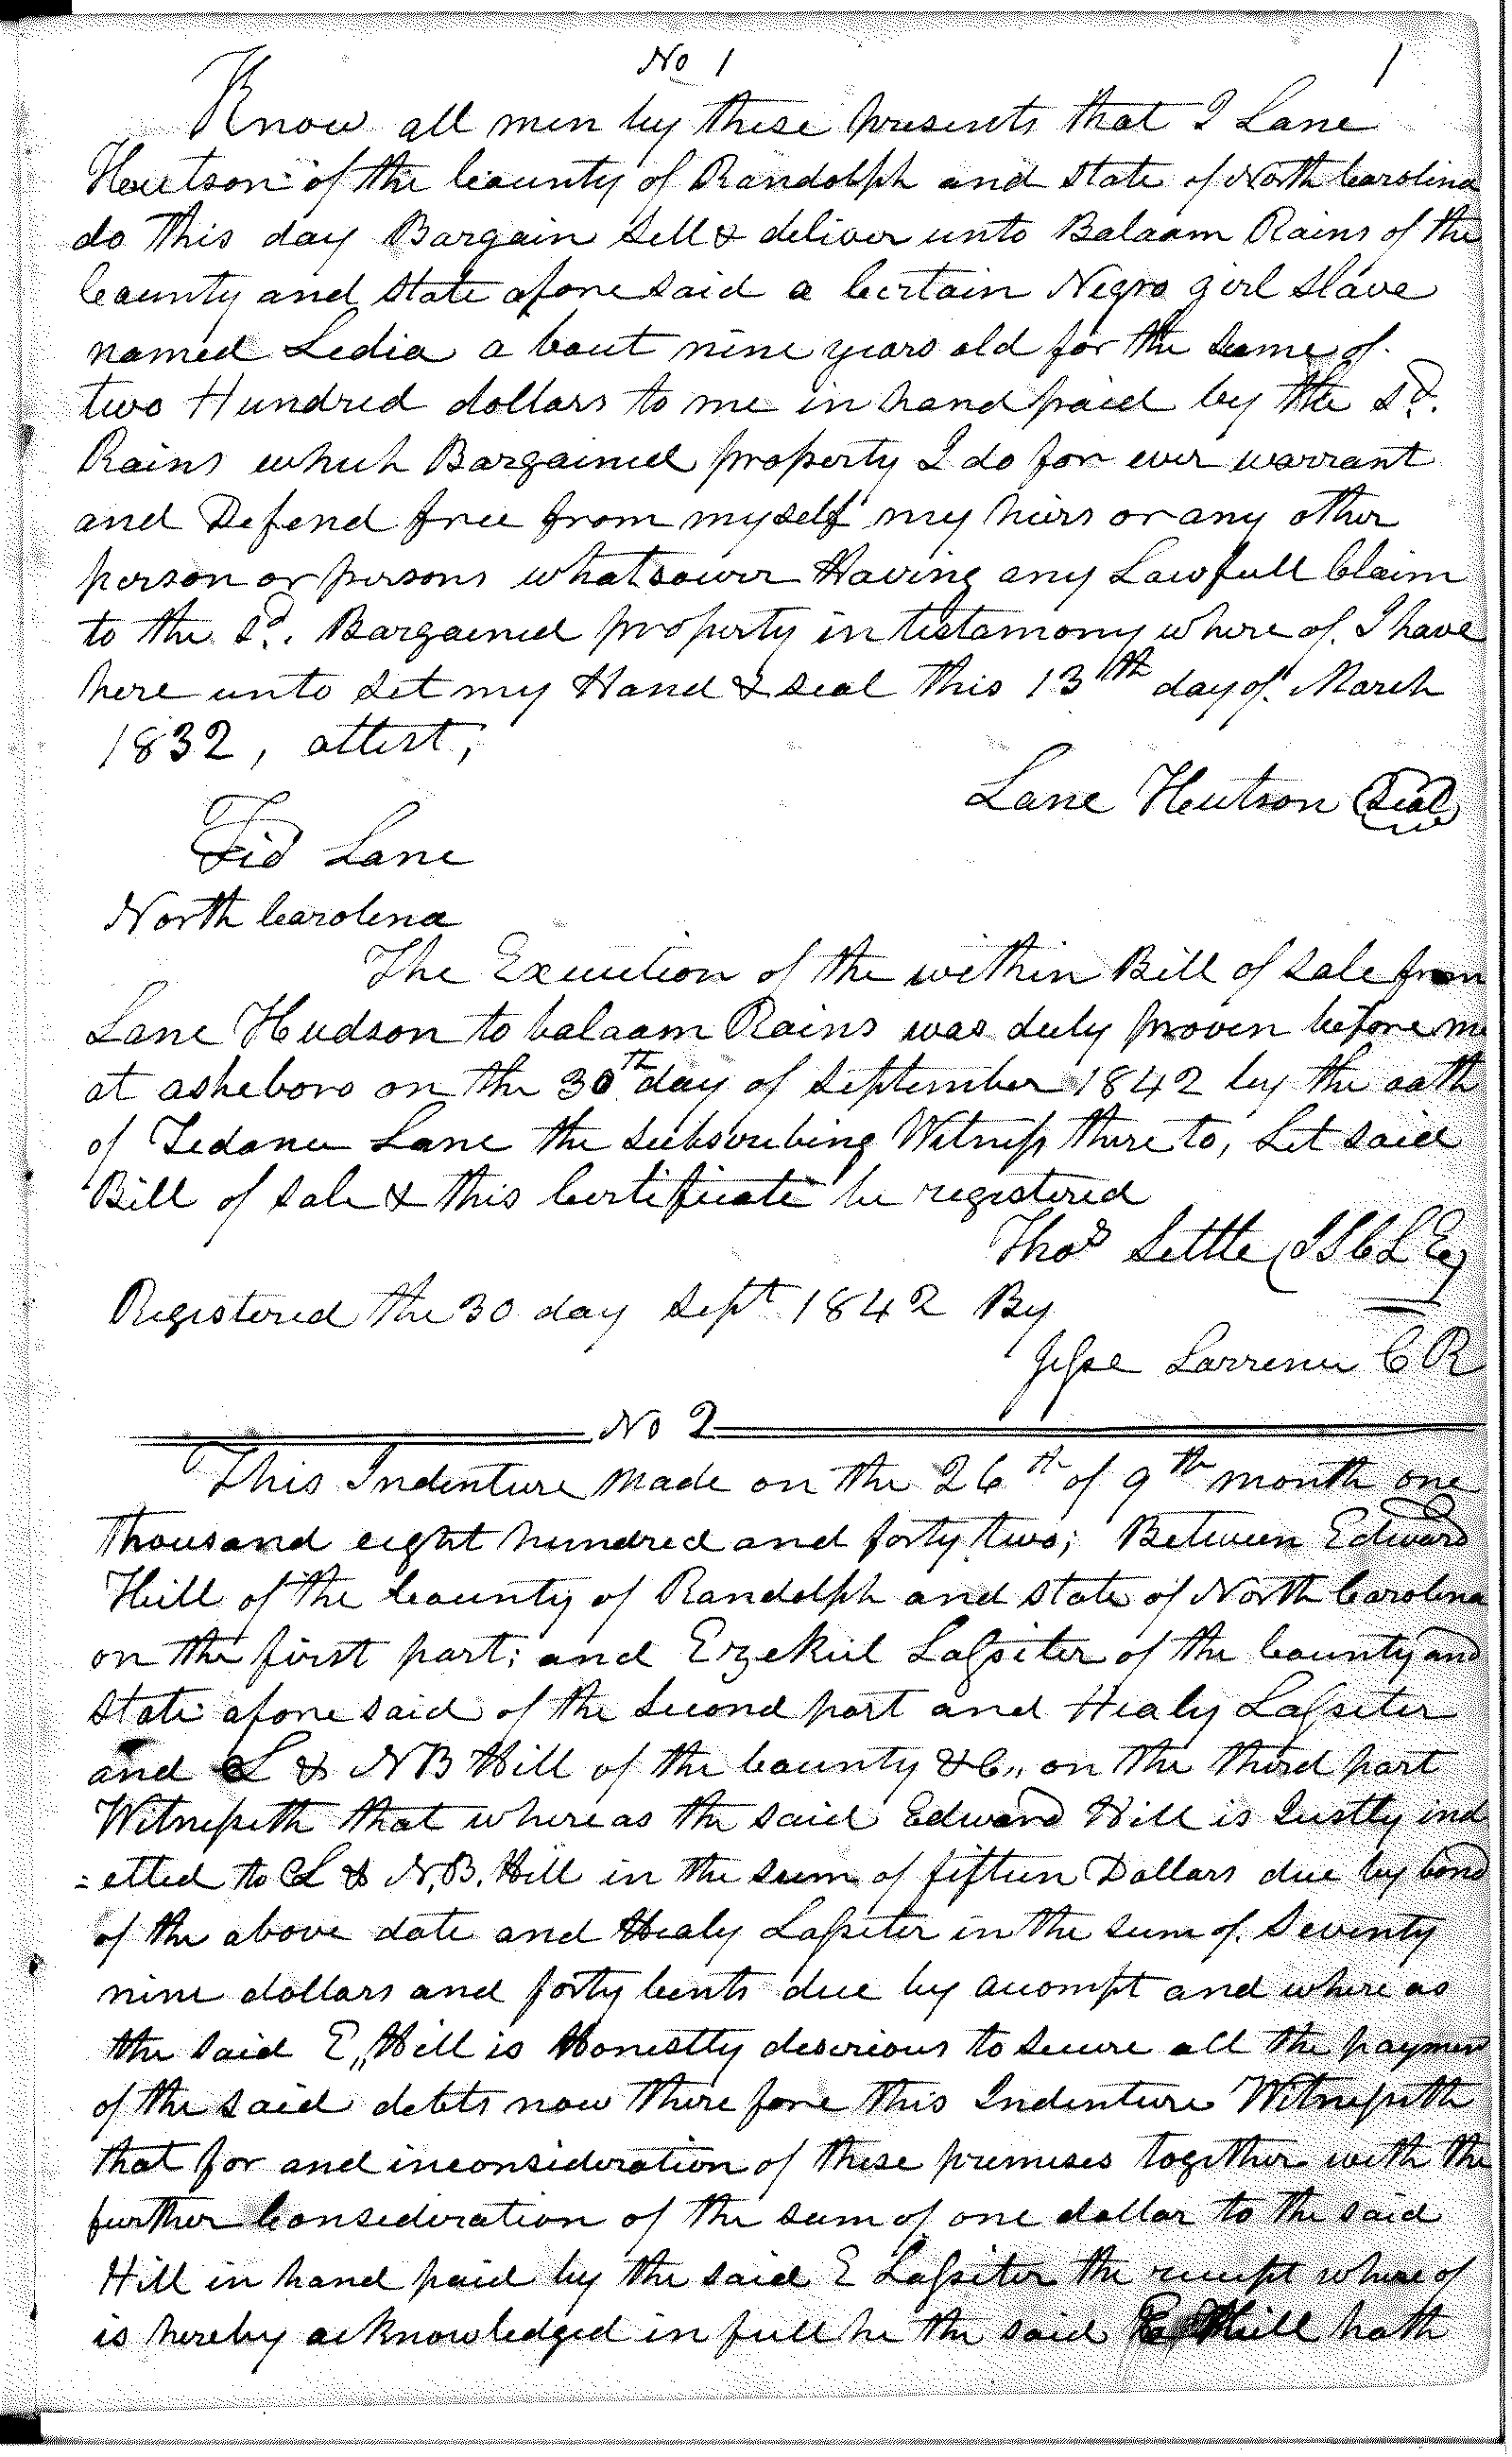 No 1
1
Know all men by these presents that I Lane
Hutson of the County of Randolph and State of North Carolina
do this day Bargain Sell & deliver unto Balaam Rains of the
County and State afore said a Certain Negro girl Slave
named Ledia a bout nine years old for the Sume of
two Hundred dollars to me in hand paid by the Sd.
Rains which Bargained property I do for ever warrant
and Defend free from my self my hiers or any other
person or persons whatsoever Having any Lawfull Claim
to the Sd. Bargained property in testamony where of. I have
here unto Set my Hand & Seal this 13th day of March
1832, attest,
Lane Hutson Seal
Tid Lane
North Carolina
The Execution of the within Bill of Sale from
Lane Hudson to balaam Rains was duly proven before me
at asheboro on the 30th day of September 1842 by the oath
of Lane the Subscribing Witness there to, Let said
Bill of Sale & this Certificate be registered
Thos Settle J S C L Eq
Registered the 30 day Sept 1842 By
Jesse Larrenu C R
No 2
This Indenture made on the 26th of 9th month one
thousand eight hundred and forty two; Between Edward
Hill of the County of Randolph and State of North Carolina
on the first part; and Ezekiel Lassiter of the County and
State afore said of the Second part and Healy Lassiter
and L & N B Hill of the County &C,, on the third part
Witnesseth that where as the said Edward Hill is Justly ind
=etted to L & N. B. Hill in the Sum of fifteen Dollars due by bond
of the above date and Healy Lassiter in the Sum of. Seventy
nine dollars and forty Cents due by accompt and where as
the said E,, Hill is Honestly deserious to Secure all the paymen
of the said debts now there fore this Indenture Witnesseth
that for and inconsideration of these premises together with the
further Consideration of the Sum of one dollar to the said
Hill in hand paid by the said E Lassiter the receipt where of
is hereby acknowledged in full he the said E Hill hath